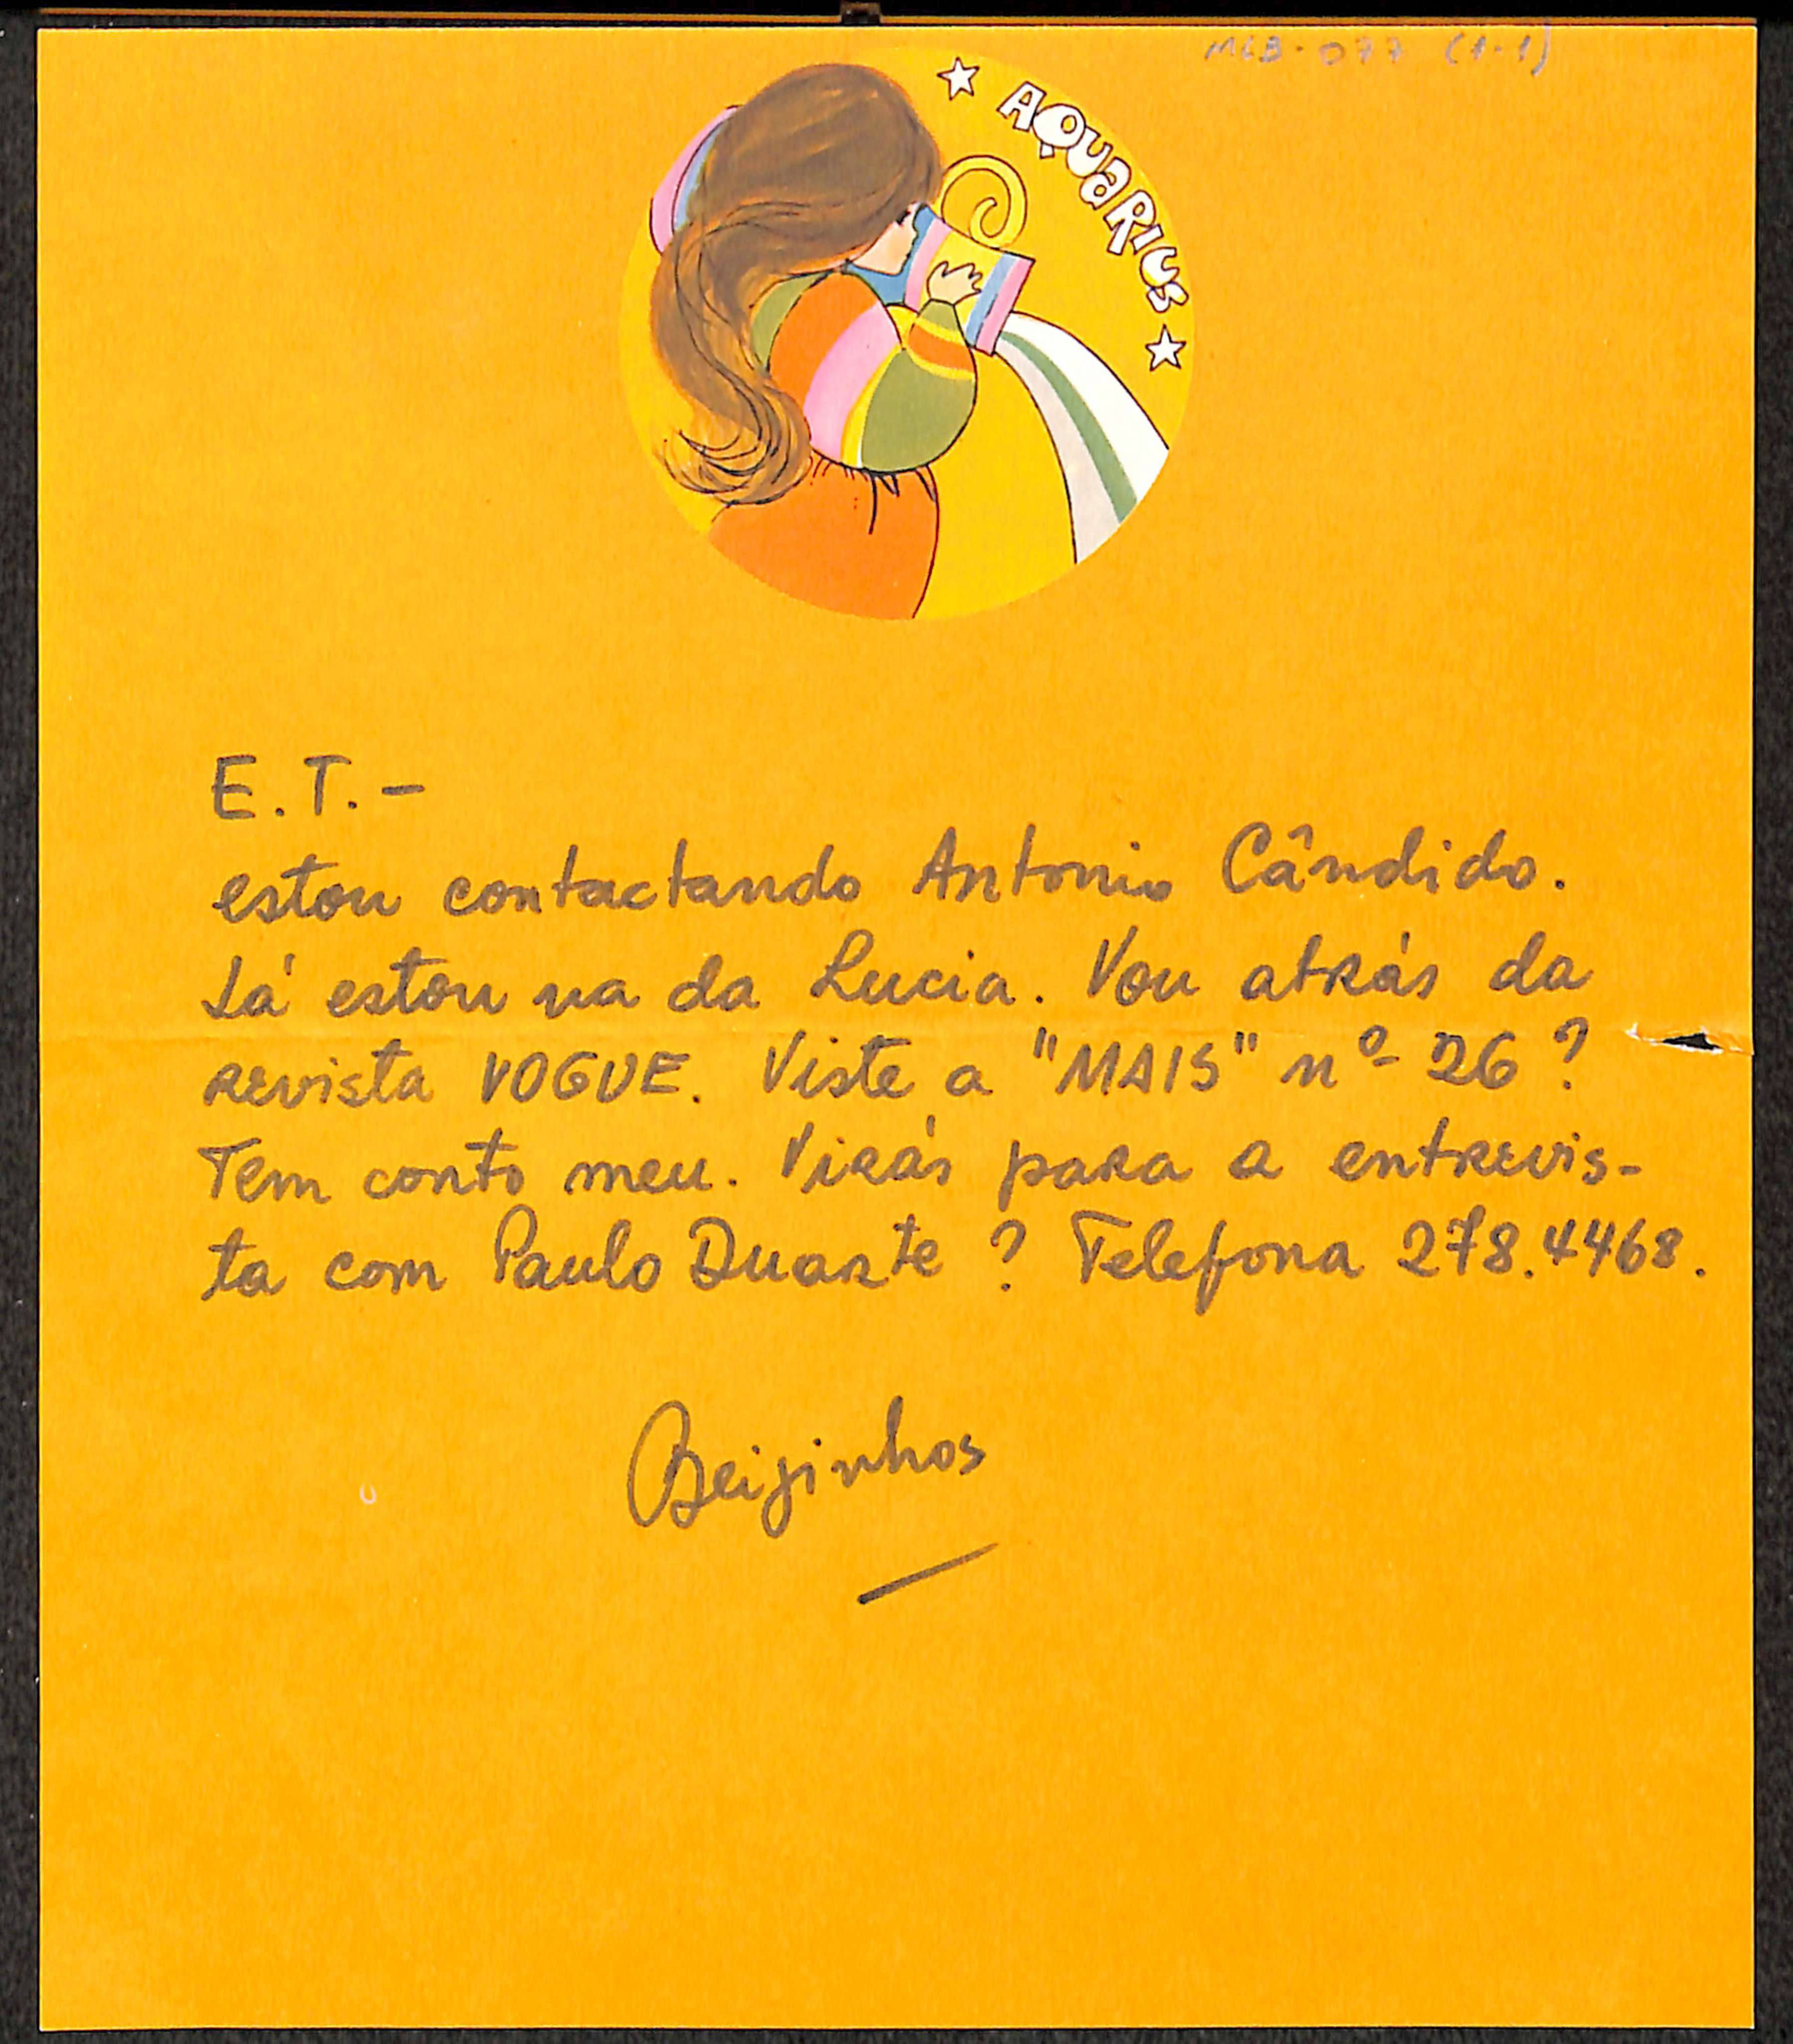 MLB-077 (1-1)
AQUARIUS
E.T.-
estou contactando Antonio Cândido.
Já estou na da Lucia. Vou atrás da
revista VOGUE. Viste a "MAIS" nº 26?
Tem conto meu. Virás para a entrevis-
ta com Paulo Duarte? Telefona 278.4468.
Beijinhos